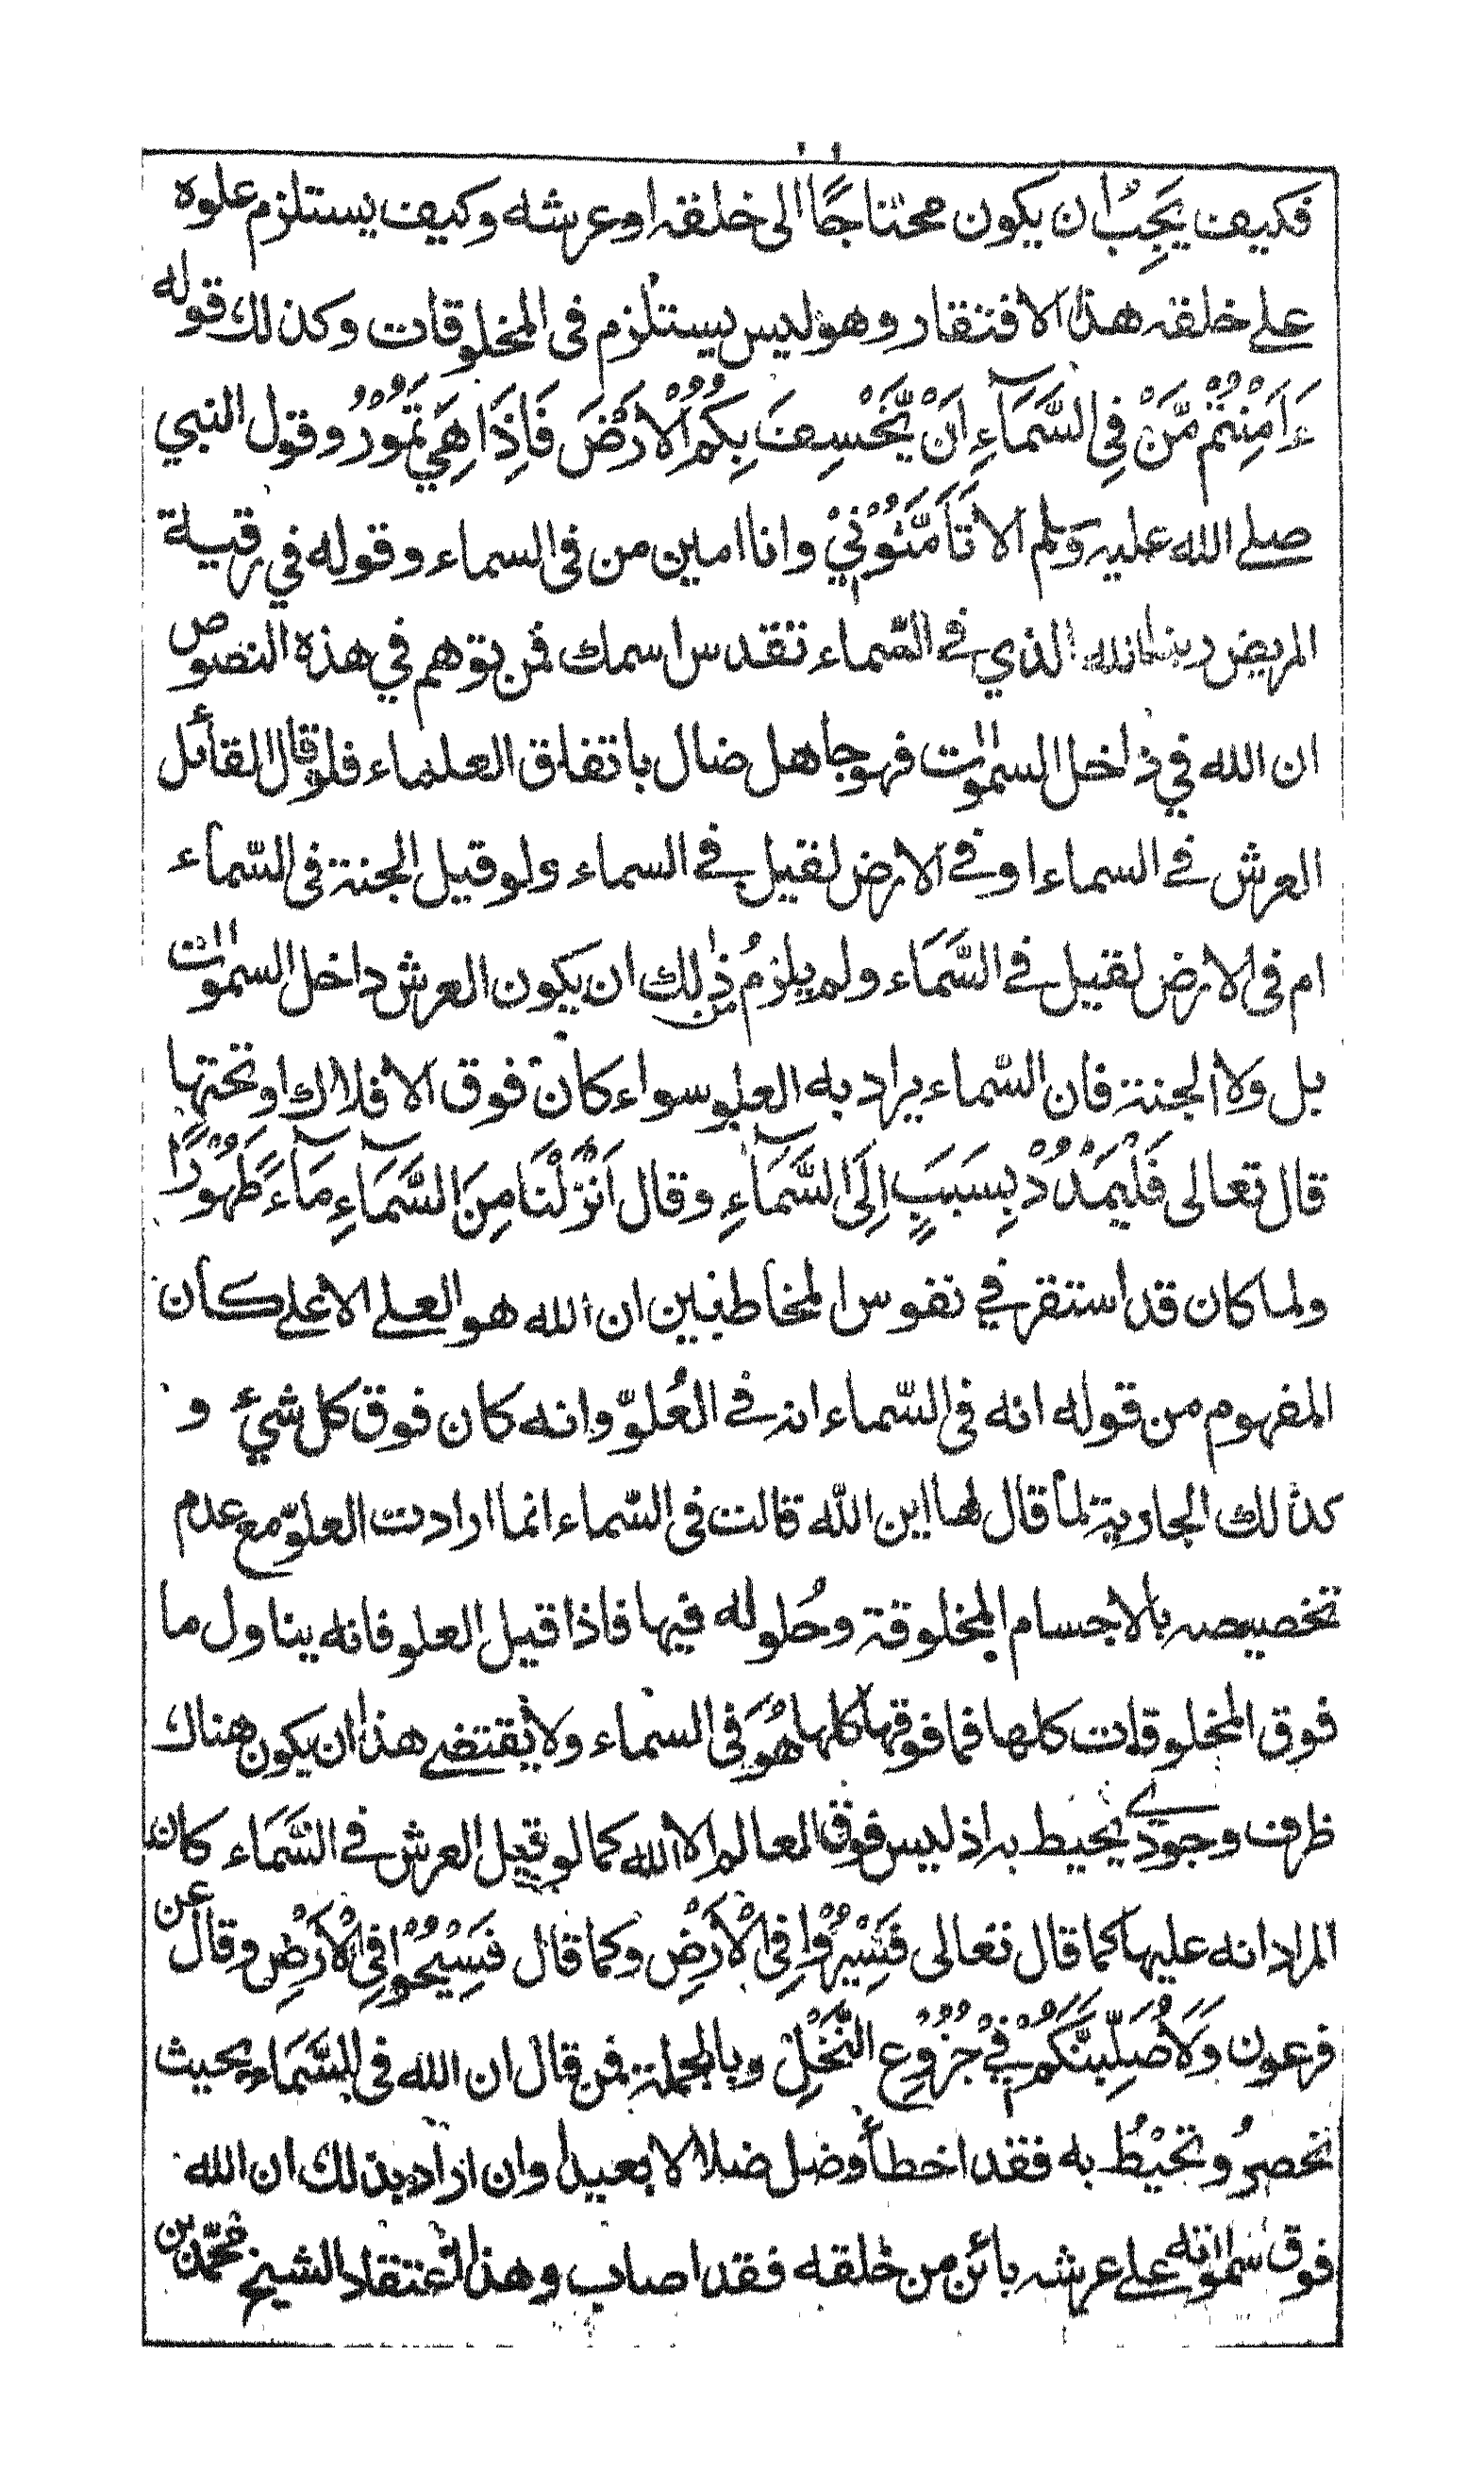 فكيف يَجِبُ ان يكون محتاجًا الى خلقه او عرشه وكيف يستلزم علوه
على خلقه هذا الافتقار وهو ليس يستلزم فى المخلوقات وكذلك قوله
ءَاَمِنْتُمْ مَّنْ فِي السَّمَآءِ اَنْ يَّخْسِفَ بِكُمُ الْاَرْضَ فَاِذَا هِيَ تَمُوْرُ وقول النبي
صلے الله عليه وسلم الا تَأمَنُوْنِيْ وانا امين من فى السماء وقوله في رقية
المريض ربنا الله الذي فے السّماء تقدس اسمك فمن توهم في هذه النصوص
ان الله في داخل السمٰوٰت فهو جاهل ضال باتفاق العلماء فلو قال القائل
العرش فے السماء او فے الارض لقيل فے السماء ولو قيل الجنة فى السّماء
ام فى الارض لقيل فے السَّمَاء ولم يلزمُ من ذٰلك ان يكون العرش داخل السمٰوٰت
بل ولا الجنة فان السّماء يراد به العلو سواء كان فوق الافلاك او تحتها
قال تعالى فَلْيَمْدُدْ بِسَبَبٍ اِلَى السَّمَآءِ وقال اَنْزَلْنَا مِنَ السَّمَآءِ مَآءً طَهُوْرًا
ولما كان قد استقر في نفوس المخاطبين ان الله هو العلے الاعلے كان
المفهوم من قوله انه فى السّماء انه فے العُلوّ وانه كان فوق كل شيئ و
كذلك الجارية لما قال لها اين الله قالت فى السّماء انما ارادت العلوّ مع عدم
تخصيصه بالاجسام المخلوقة وحُلوله فيها فاذا قيل العلو فانه يتناول ما
فوق المخلوقات كلها فما فوقها كلها هُوَ فى السماء ولا يقتضے هذا ان يكون هناك
ظرف وجودي يحيط به اذ ليس فوق العالم الا الله كما لو قيل العرش فے السَّمَاء كان
المراد انه عليها كما قال تعالى فَسِيْرُوْا فِى الْاَرْضِ وكما قال فَسِيْحُوْا فِى الْاَرْضِ وقال عن
فرعون وَلَاُصَلِّبَنَّكُمْ فِيْ جُزُوْعِ النَّخْلِ وبالجملة فمن قال ان الله فى السَّمَاء بحيث
تحصرُ وتحيْطُ به فقد اخطأ وضل ضلالا بعيدا وان اراد بذلك ان الله
فوق سمٰوٰته على عرشه بائن من خلقه فقد اصاب وهذا اعتقاد الشيخ محمّد بن